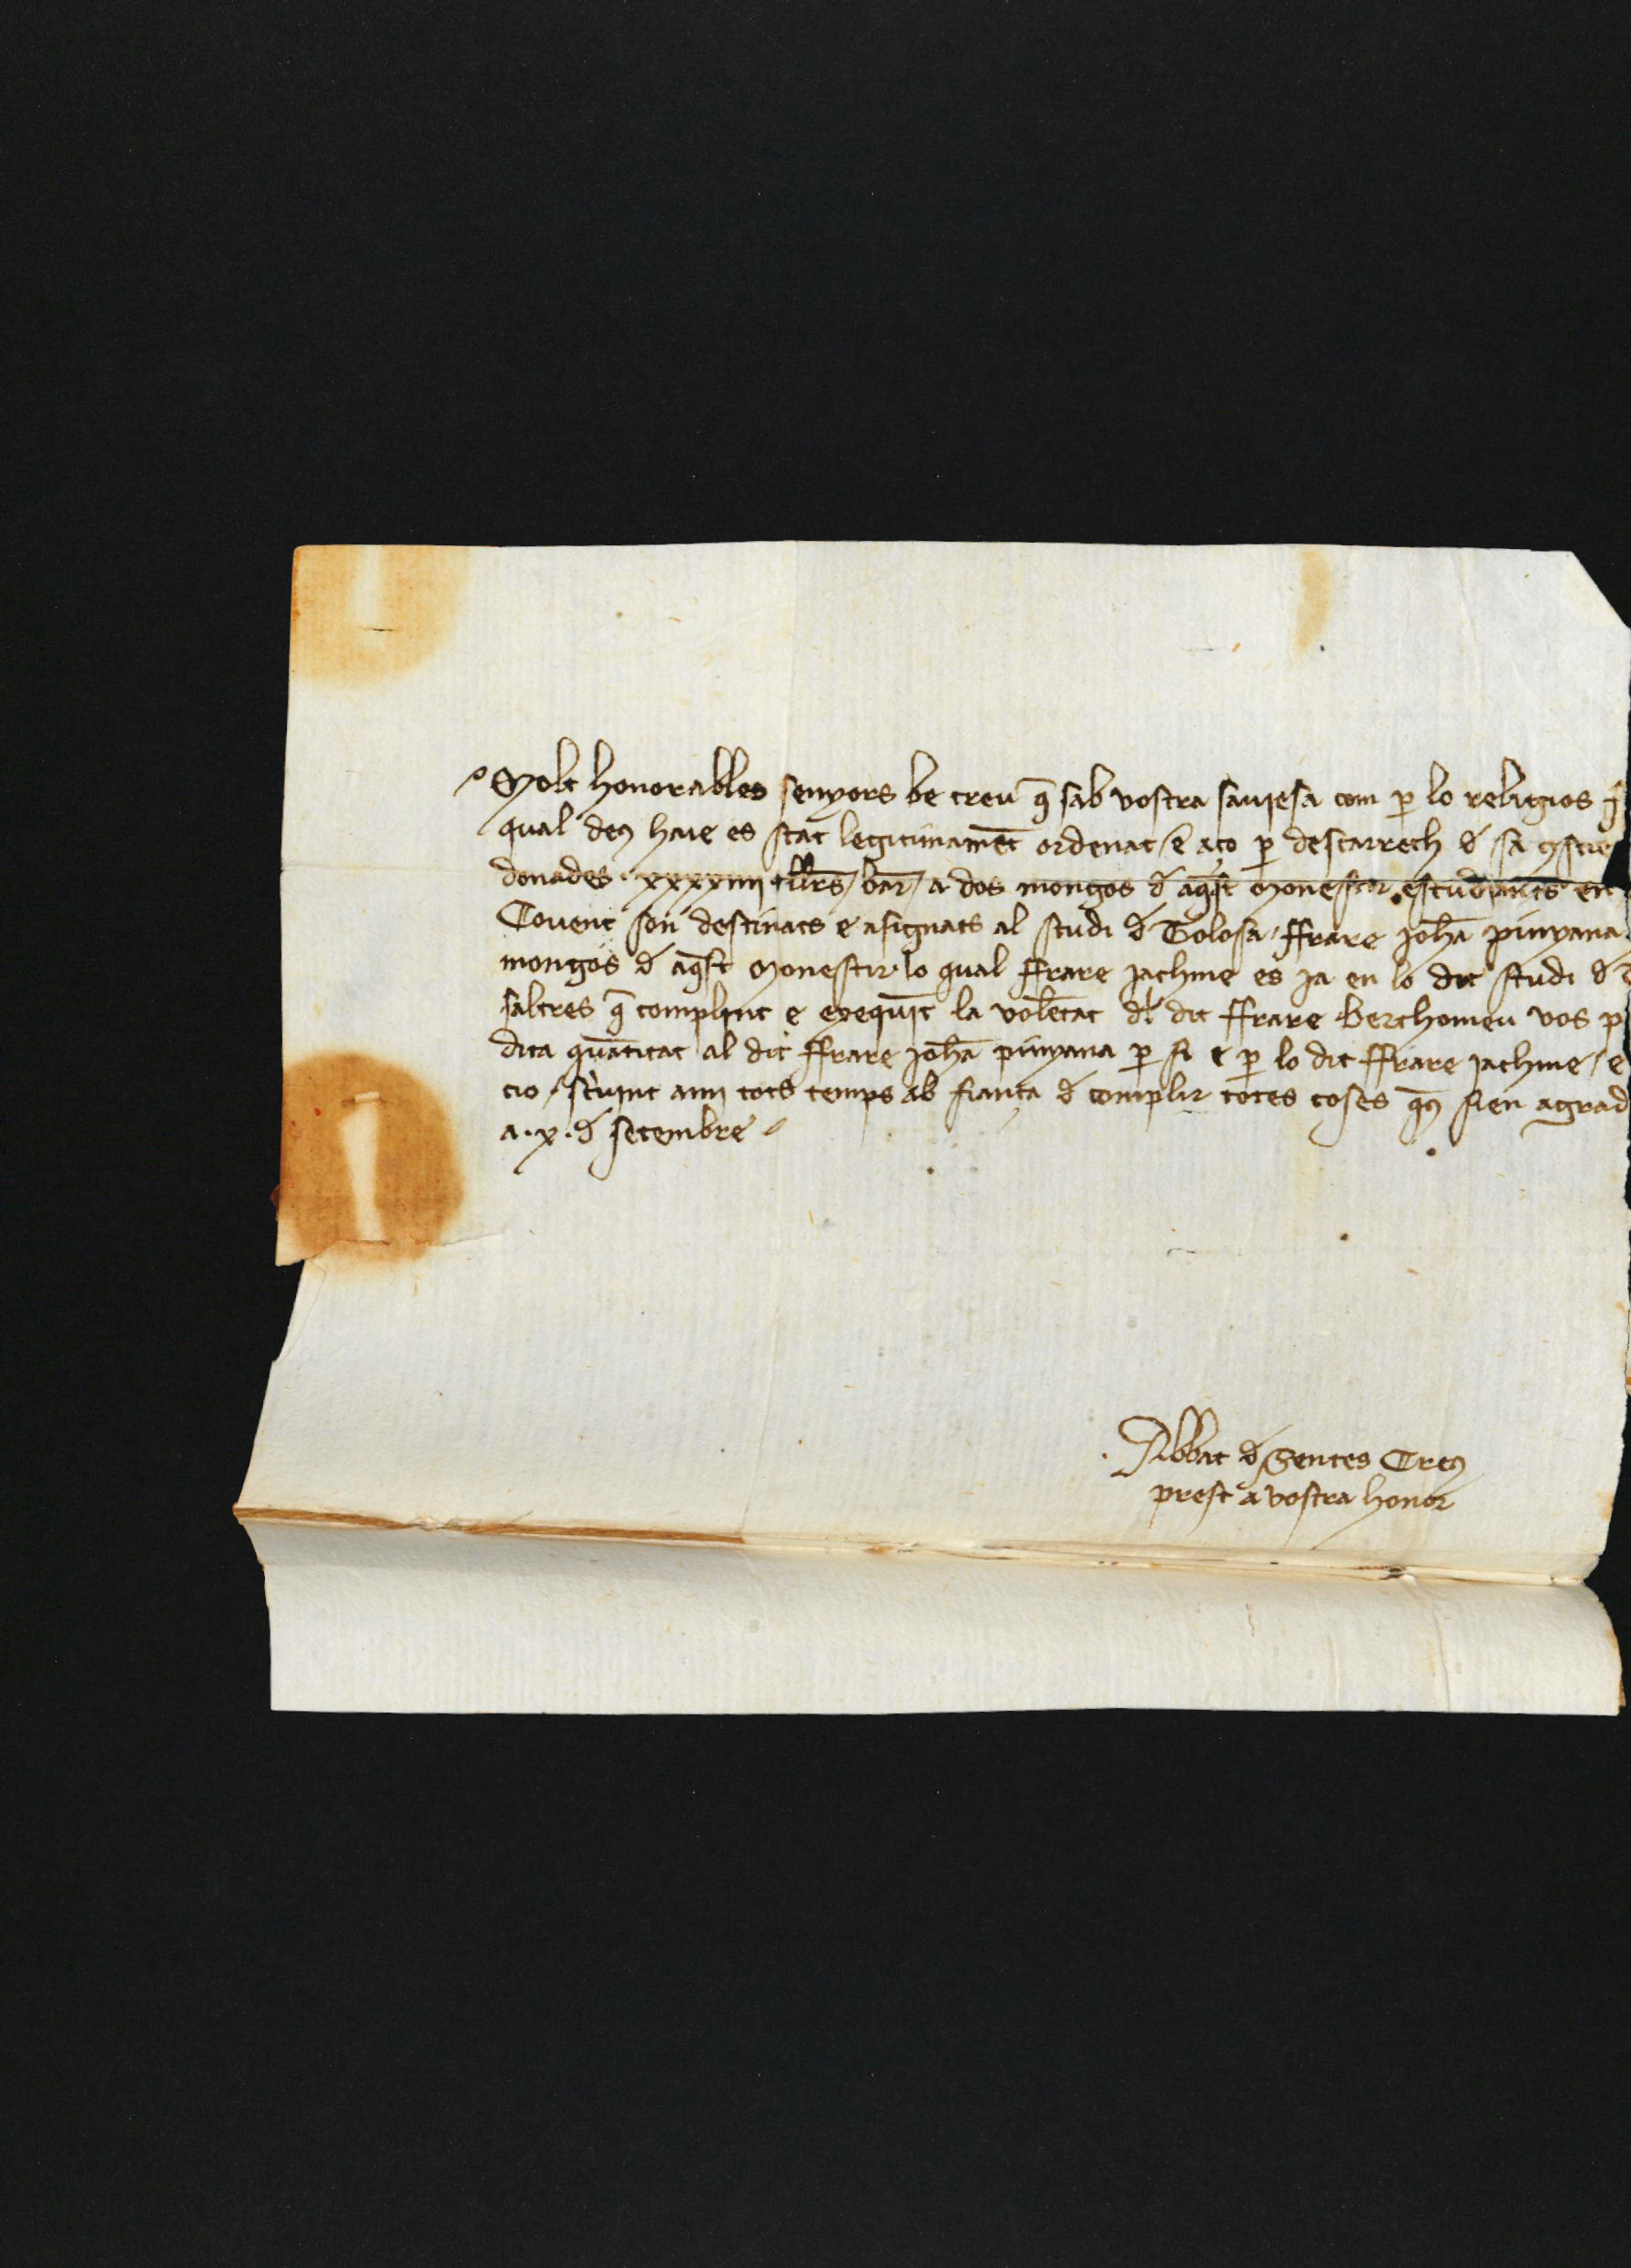 Molt honorables senyors be creu q̄ sab vostra sauiesa com p̱ lo religios
qual deꝯ haie es stat legitimamēt ordenat / e aço p̱ descarrech d̓ sa ꝯscie
donades · xxxxiiii llrs / bar̄ / a dos monges d̓ aq̄st Monestir estudiants en
Couent son destinats e asignats al studi d̓ Tolosa / ffrare Joħa pinyana
monges d̓ aq̄st Monestir · lo qual ffrare jachme es ja en lo dit studi d̓
saltres q̄ complint e exequīt la volētat dl̓ dit ffrare berthomeu vos p
dita quātitat al dit ffrare joħa pinyana p̱ si e p̱ lo dit ffrare jachme / e
cio / scriuint a mi tots temps ab fiança d̓ complir totes coses q̄ꝯ sien agrad
a · x · d̓ setembre
Abbat d̓ Sentes Creꝯ
prest a vostra honor